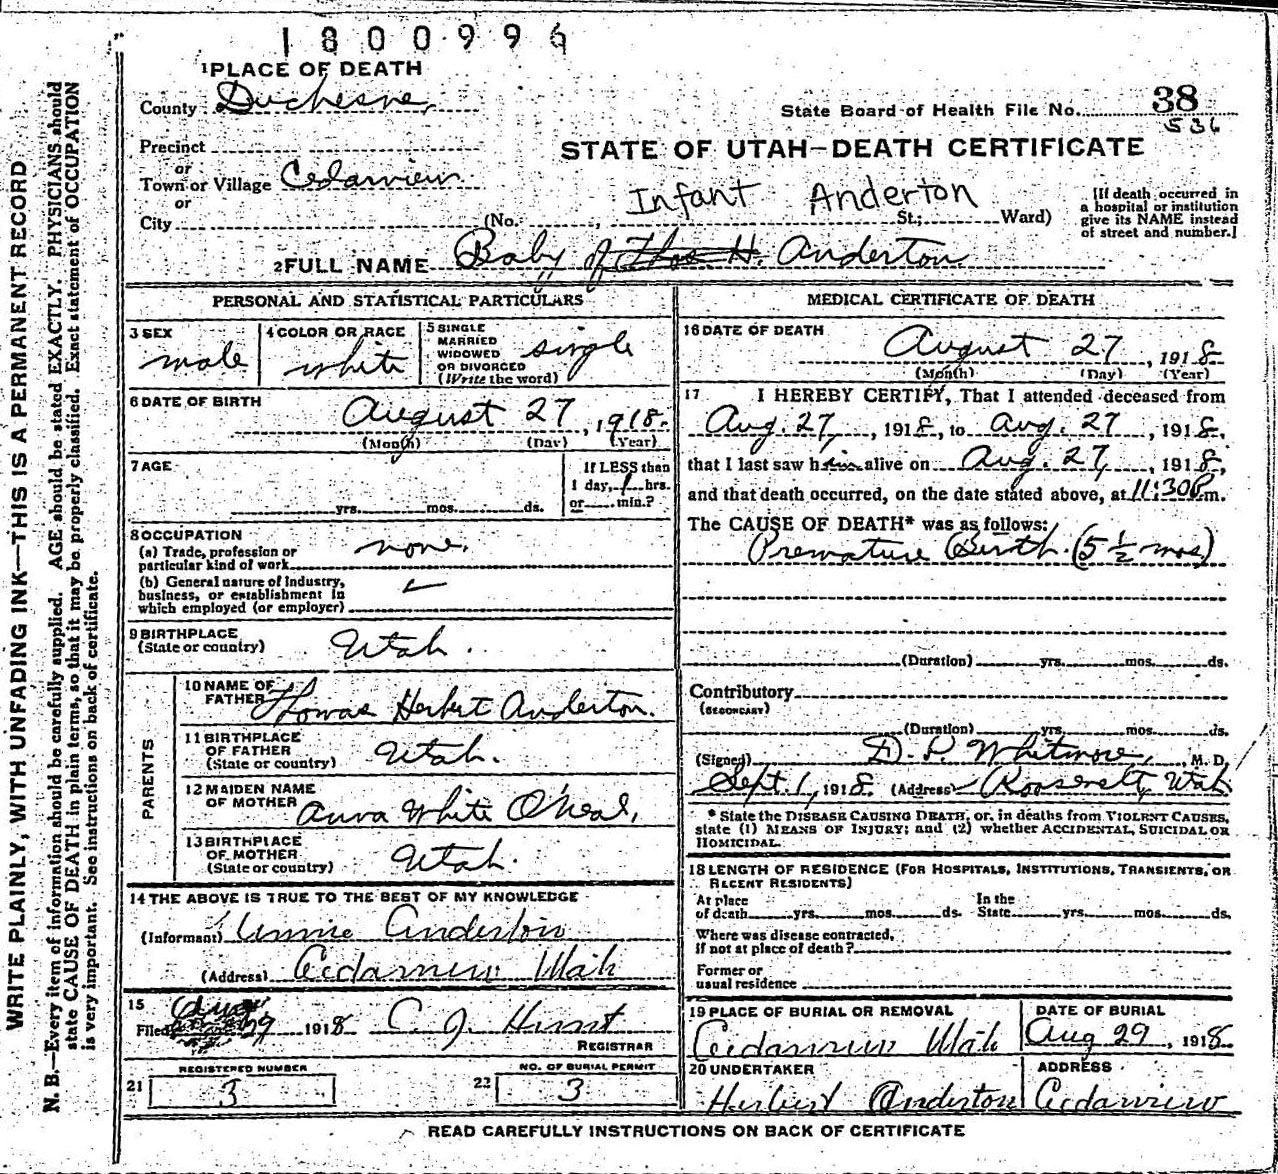 1800996
1 PLACE OF DEATH
County Duchesne
State Board of Health File No. 38
536
Precinct
or
Town or Village Cedarview
or
City
STATE OF UTAH—DEATH CERTIFICATE
Infant Anderton
(No. St.; Ward)
[If death occurred in
a hospital or institution
give its NAME instead
of street and number.]
2 FULL NAME Baby of Thos. H. Anderton
PERSONAL AND STATISTICAL PARTICULARS
3 SEX
male
4 COLOR OR RACE
white
5 SINGLE
MARRIED
WIDOWED
OR DIVORCED
(Write the word)
single
6 DATE OF BIRTH
August 27, 1918.
(Month) (Day) (Year)
7 AGE
yrs. mos. ds.
If LESS than
1 day, 1 hrs.
or min.?
8 OCCUPATION
(a) Trade, profession or
particular kind of work none.
(b) General nature of industry,
business, or establishment in
which employed (or employer)
9 BIRTHPLACE
(State or country) Utah.
PARENTS
10 NAME OF
FATHER Thomas Herbert Anderton.
11 BIRTHPLACE
OF FATHER
(State or country) Utah.
12 MAIDEN NAME
OF MOTHER Anna White O'Neal,
13 BIRTHPLACE
OF MOTHER
(State or country) Utah.
14 THE ABOVE IS TRUE TO THE BEST OF MY KNOWLEDGE
(Informant) Annie Anderton
(Address) Cedarview Utah
15
Filed Aug 29 1918 C. J. Hunt
REGISTRAR
REGISTERED NUMBER
21 3
NO. OF BURIAL PERMIT
22 3
MEDICAL CERTIFICATE OF DEATH
16 DATE OF DEATH
August 27, 1918
(Month) (Day) (Year)
17 I HEREBY CERTIFY, That I attended deceased from
Aug. 27, 1918, to Aug. 27, 1918,
that I last saw him alive on Aug. 27, 1918,
and that death occurred, on the date stated above, at 11:30P m.
The CAUSE OF DEATH* was as follows:
Premature Birth. (5 1/2 mos)
(Duration) yrs. mos. ds.
Contributory
(SECONDARY)
(Duration) yrs. mos. ds.
(Signed) D. P. Whitmore, M. D.
Sept. 1, 1918. (Address) Roosevelt, Utah
* State the DISEASE CAUSING DEATH, or, in deaths from VIOLENT CAUSES,
state (1) MEANS OF INJURY; and (2) whether ACCIDENTAL, SUICIDAL OR
HOMICIDAL.
18 LENGTH OF RESIDENCE (FOR HOSPITALS, INSTITUTIONS, TRANSIENTS, OR
RECENT RESIDENTS)
At place
of death yrs. mos. ds.
In the
State yrs. mos. ds.
Where was disease contracted,
if not at place of death?
Former or
usual residence
19 PLACE OF BURIAL OR REMOVAL
Cedarview Utah
DATE OF BURIAL
Aug 29, 1918
20 UNDERTAKER
Herbert Anderton
ADDRESS
Cedarview
READ CAREFULLY INSTRUCTIONS ON BACK OF CERTIFICATE
WRITE PLAINLY, WITH UNFADING INK—THIS IS A PERMANENT RECORD
N. B.—Every item of information should be carefully supplied. AGE should be stated EXACTLY. PHYSICIANS should
state CAUSE OF DEATH in plain terms, so that it may be properly classified. Exact statement of OCCUPATION
is very important. See instructions on back of certificate.